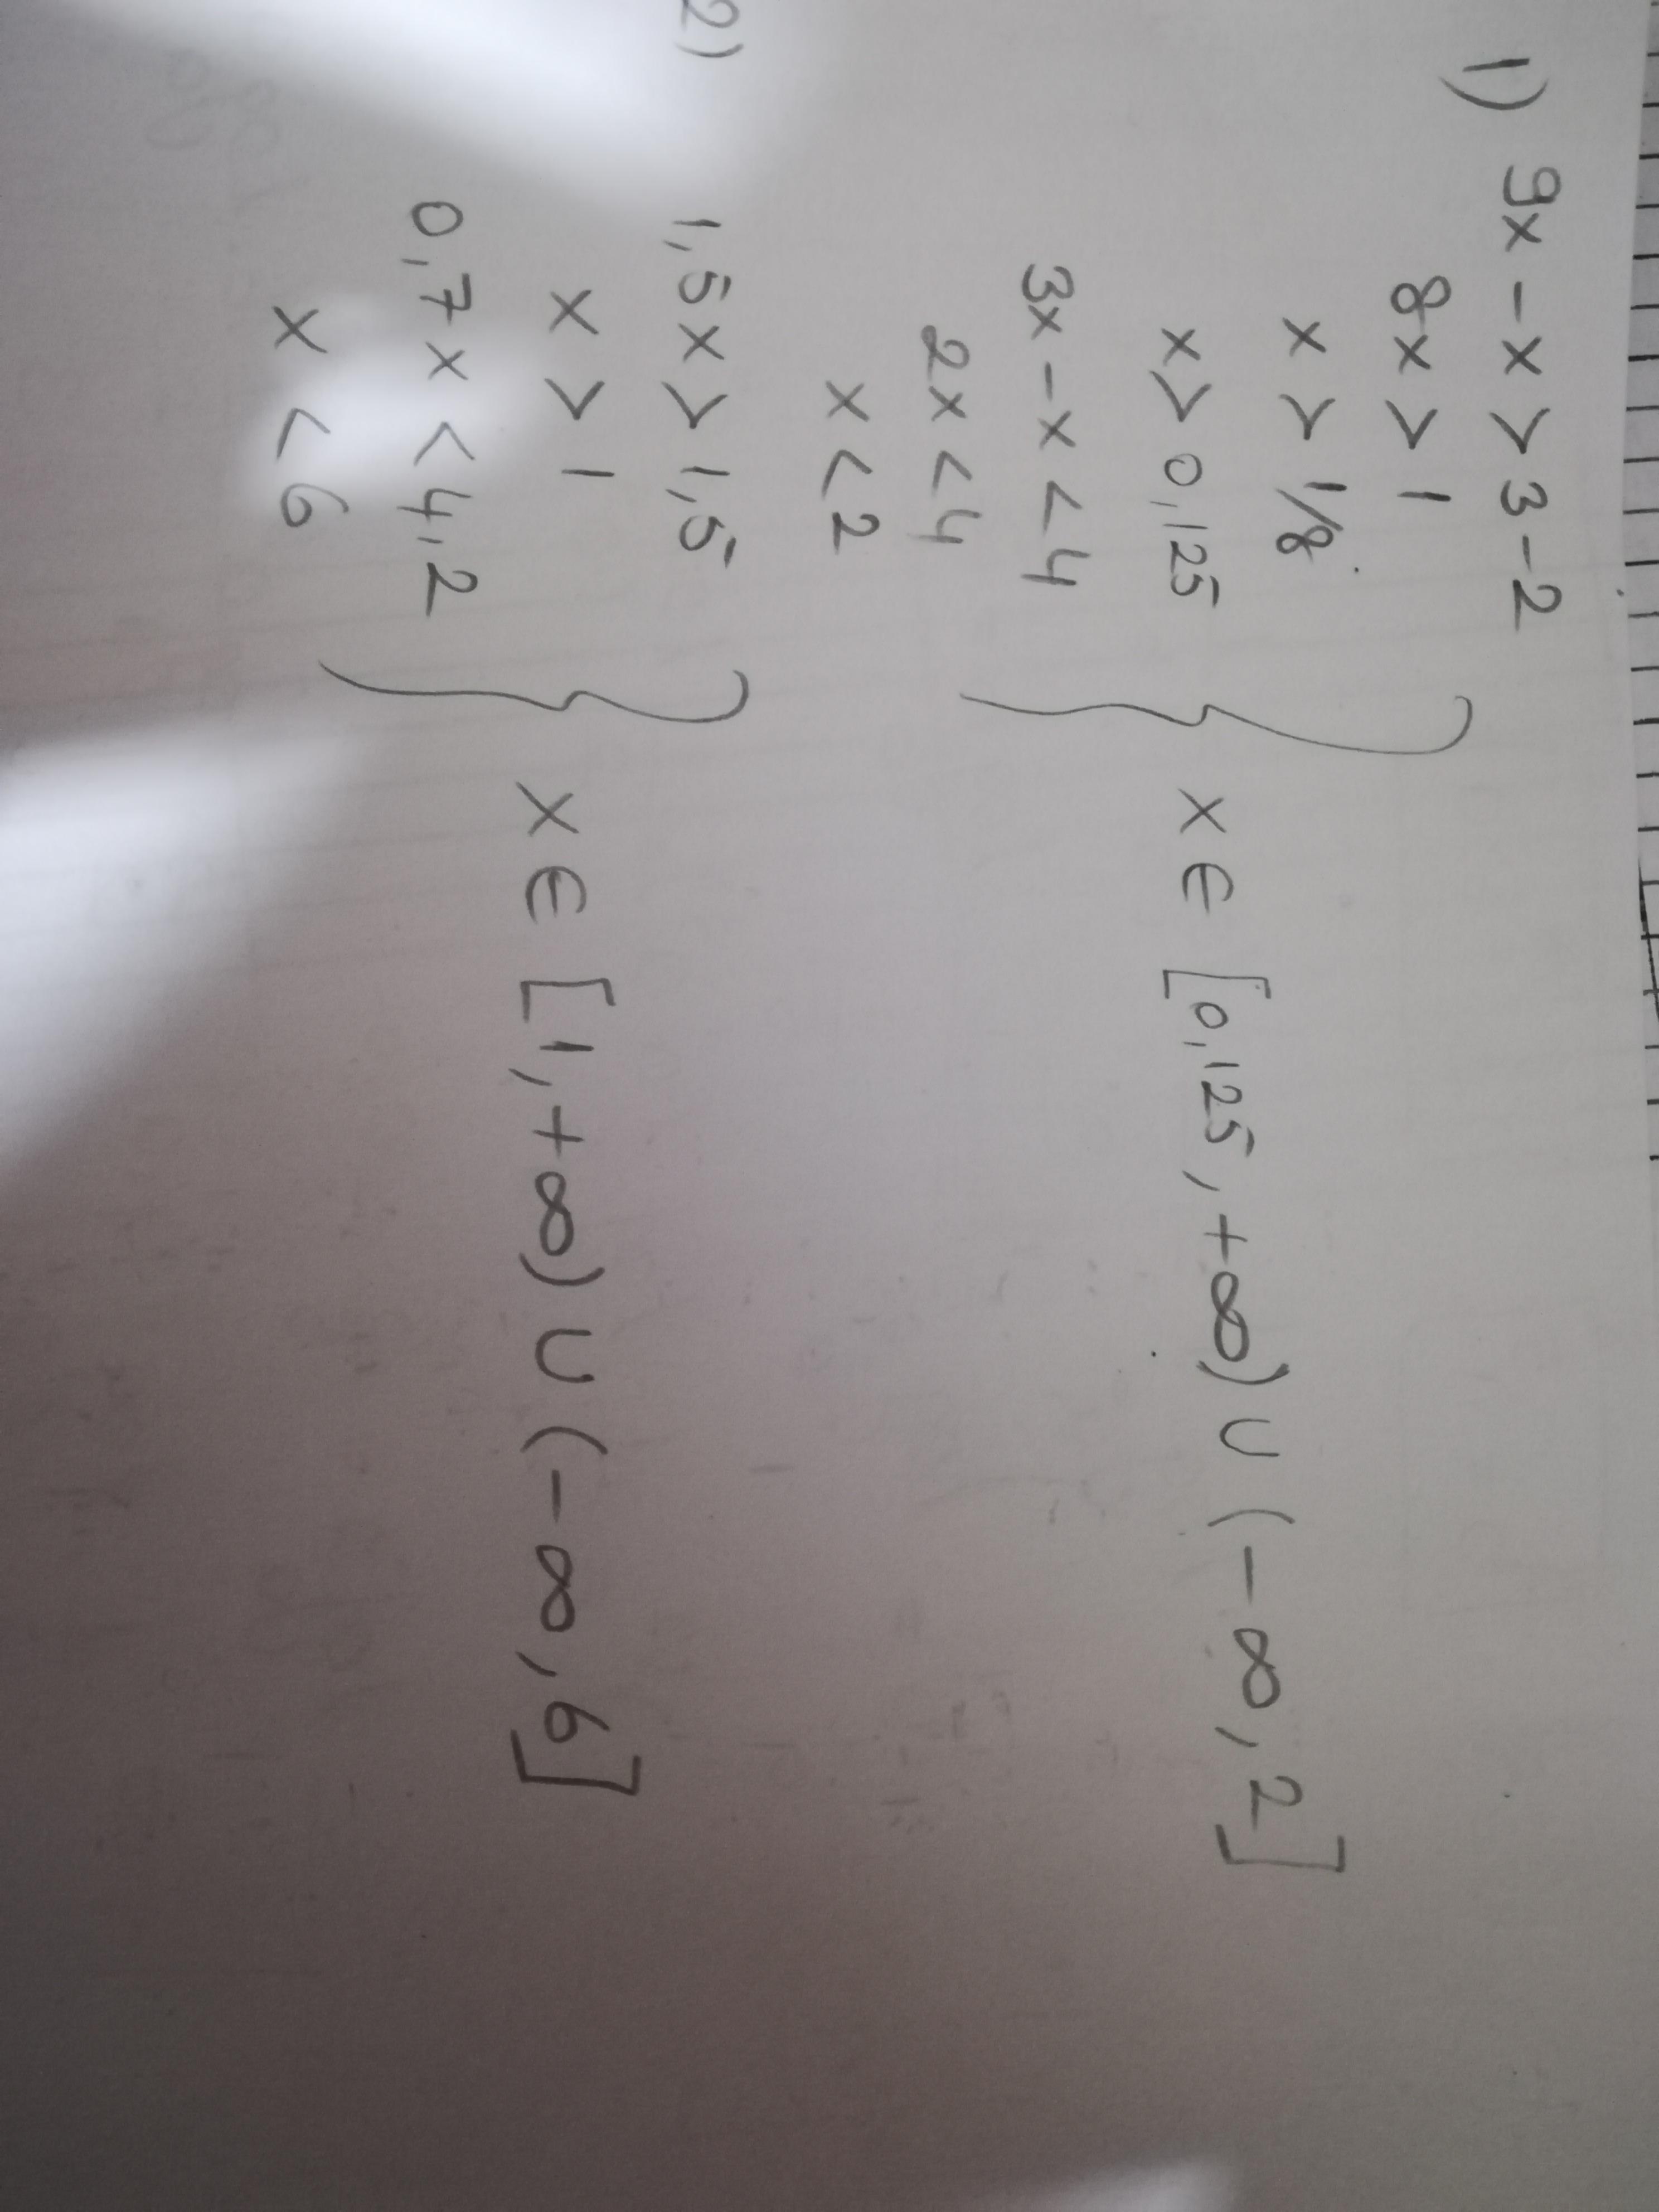 1) 9x - x > 3 - 2
8x > 1
x > 1/8
x > 0,125
3x - x < 4
2x < 4
x < 2
} x ∈ [0,125, +∞) ∪ (-∞, 2]
2) 1,5x > 1,5
x > 1
0,7x < 4,2
x < 6
} x ∈ [1, +∞) ∪ (-∞, 6]